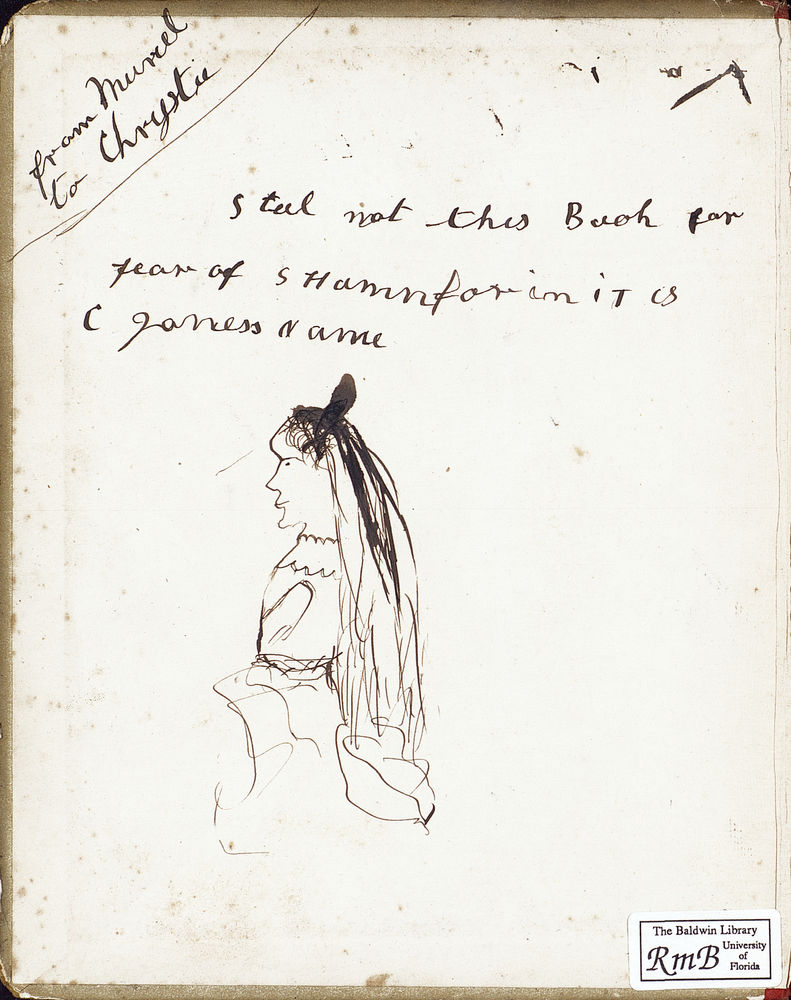 from Muriel
to Chrystie
Steel not this Book for
fear of SHamn for in iT is
C Joness Name
The Baldwin Library
RmB University
of
Florida